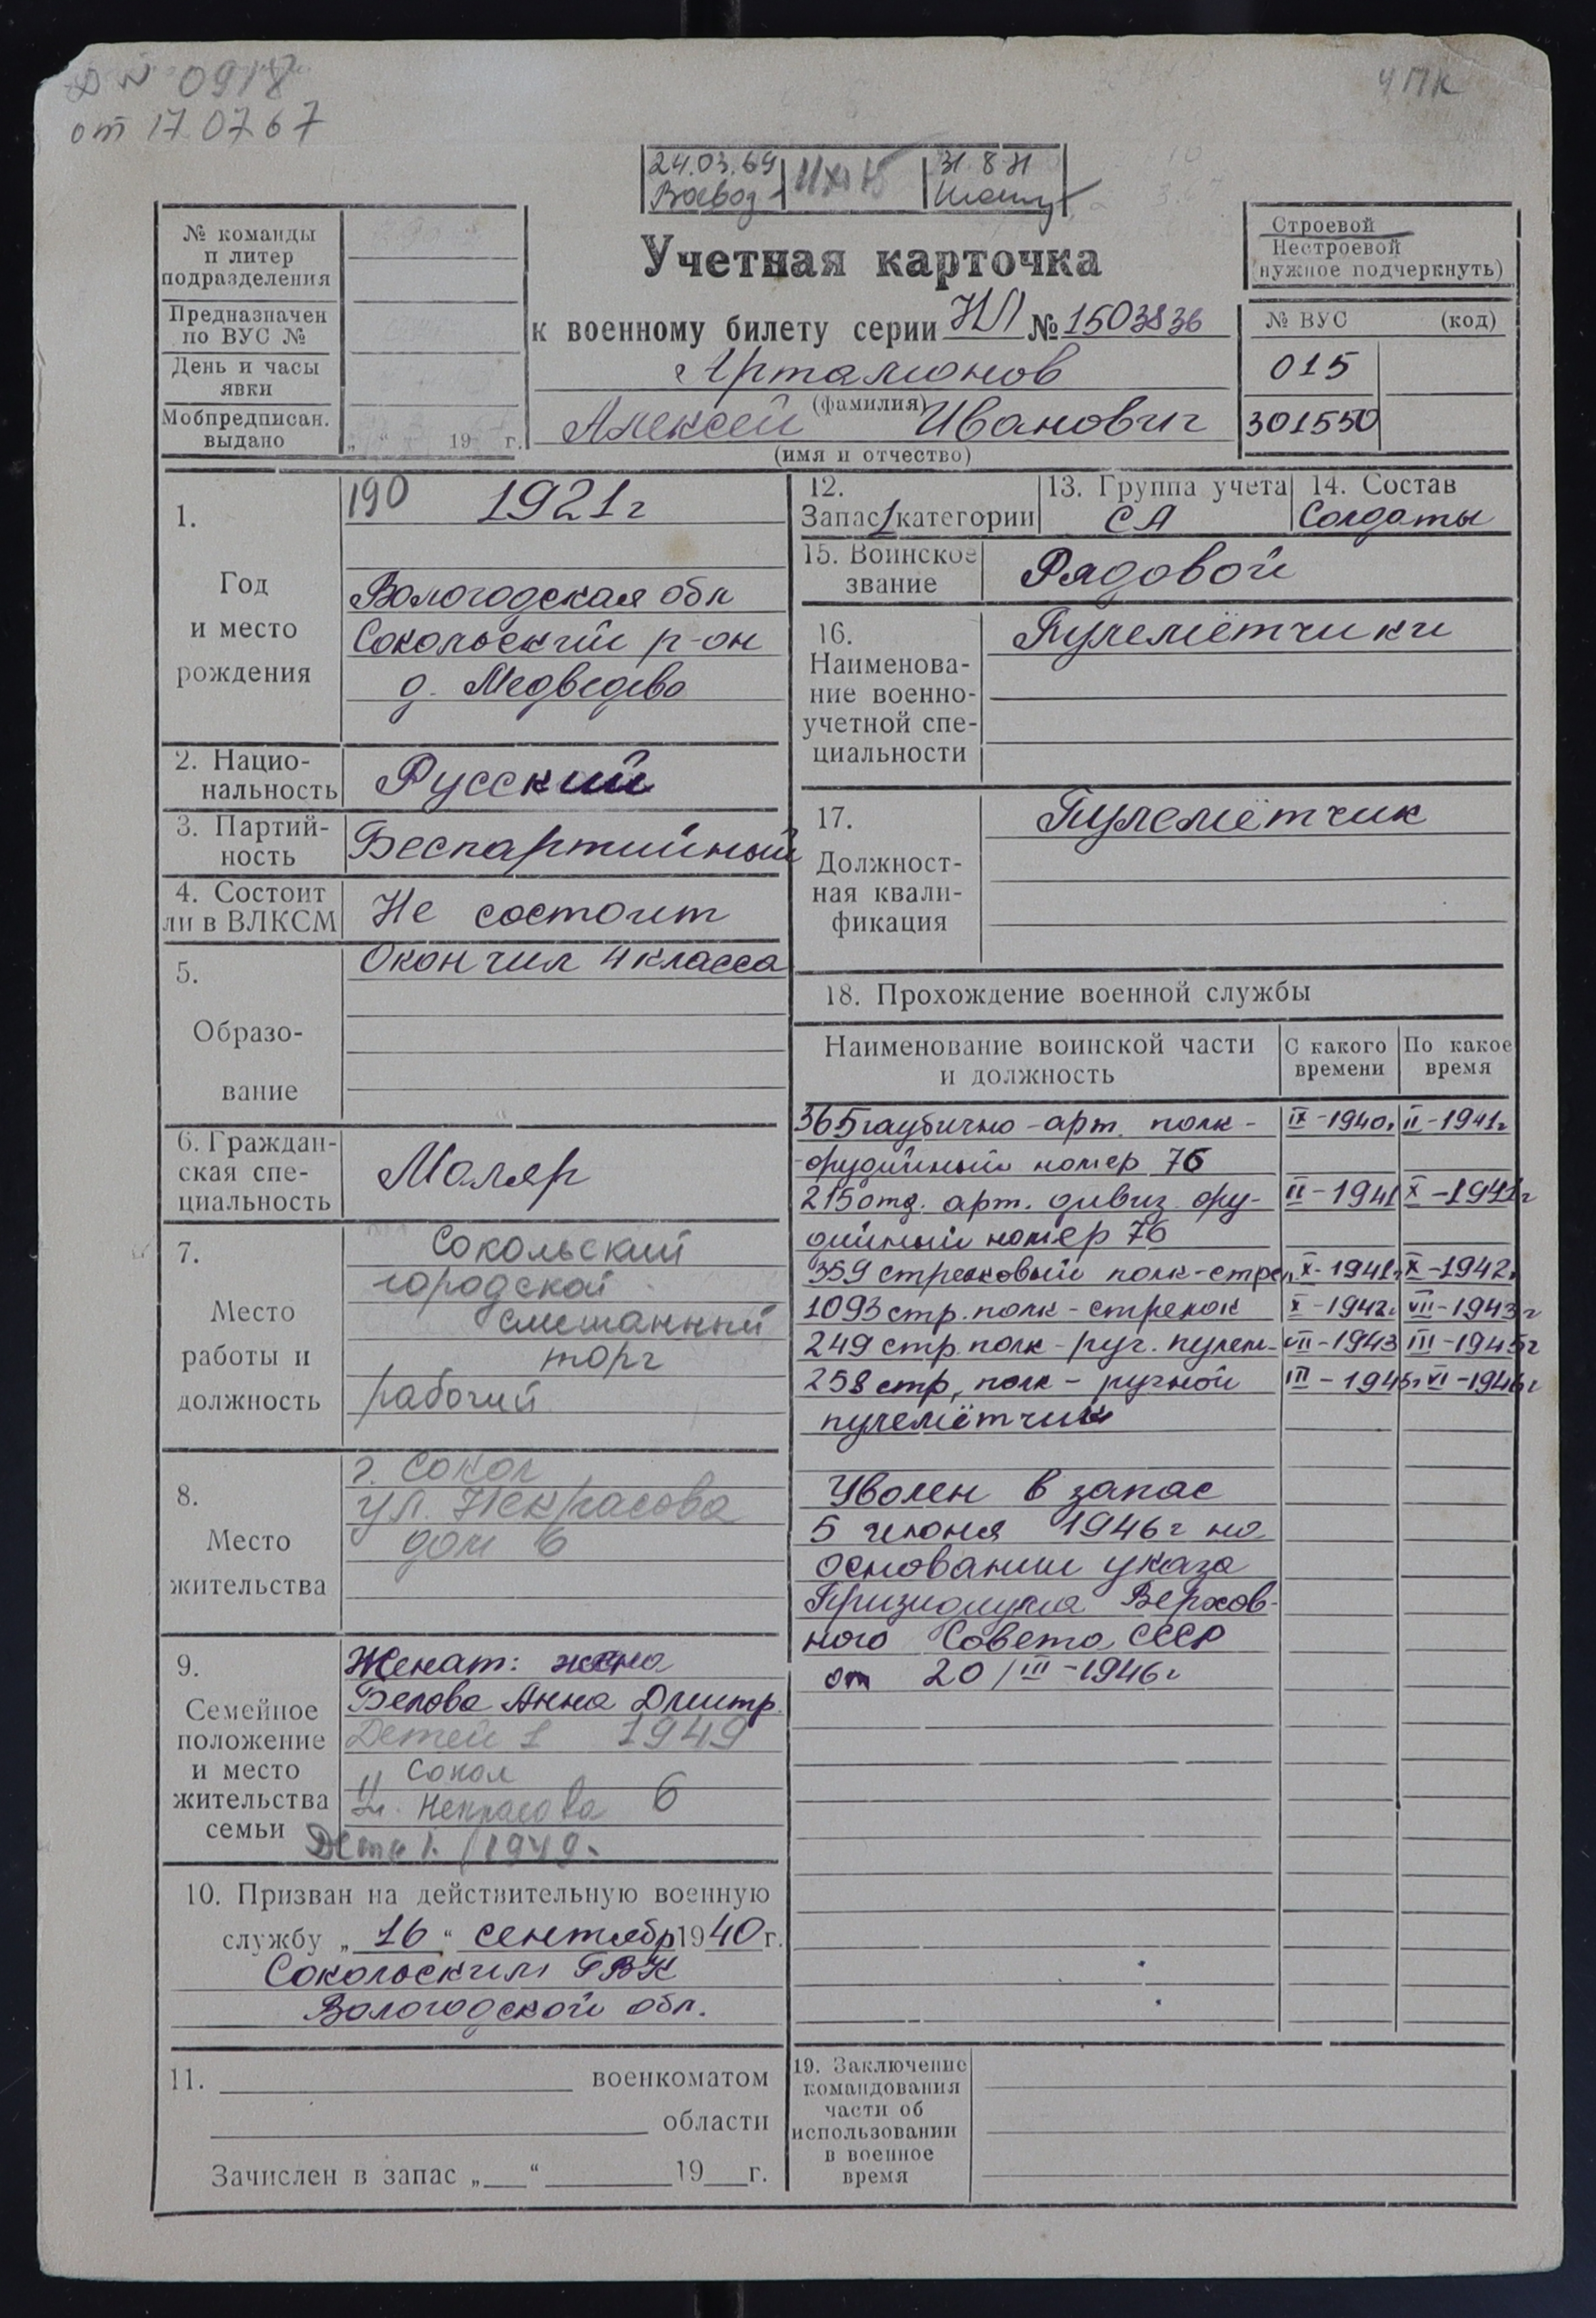 0918
от 17 07 67
ЧПК
24.03.69
31 8 71
№ команды
п литер
подразделения
Предназначен
по ВУС №
День и часы
явки
Мобпредписан.
выдано
„ “ 19 г.
Учетная карточка
к военному билету серии НЛ № 1503836
Арталионов
(фамилия)
Алексей Иванович
(имя и отчество)
Строевой
Нестроевой
(нужное подчеркнуть)
№ ВУС (код)
015
301550
1.
Год
и место
рождения
190 1921г
Вологодская обл
Сокольский р-он
д. Медведево
2. Нацио-
нальность
Русский
3. Партий-
ность
Беспартийный
4. Состоит
ли в ВЛКСМ
Не состоит
5.
Образо-
вание
Окончил 4 класса
6. Граждан-
ская спе-
циальность
Маляр
7.
Место
работы и
должность
Сокольский
городской
смешанный
торг
рабочий
8.
Место
жительства
г. Сокол
ул. Некрасова
дом 6
9.
Семейное
положение
и место
жительства
семьи
Женат: жена
Белова Анна Дмитр.
Детей 1 1949
Сокол
Некрасова 6
1949.
10. Призван на действительную военную
службу „16“ сентябр 1940г.
Сокольским ГВК
Вологодской обл.
11. военкоматом
области
Зачислен в запас „ “ 19 г.
12.
Запас 1 категории
13. Группа учета
СА
14. Состав
Солдаты
15. Воинское
звание
Рядовой
16.
Наименова-
ние военно-
учетной спе-
циальности
Пулемётчики
17.
Должност-
ная квали-
фикация
Пулемётчик
18. Прохождение военной службы
Наименование воинской части
и должность
С какого
времени
По какое
время
365 гаубично-арт. полк- IX-1940г II-1941г
орудийный номер 76
215 отд. арт. дивиз. ору- II-1941 X-1941г
дийный номер 76
359 стрелковый полк-стрел X-1941г X-1942г
1093 стр. полк-стрелок X-1942г VII-1943г
249 стр. полк-руч. пулем- VII-1943 III-1945г
258 стр, полк - ручной III-1945г VI-1946г
пулемётчик
Уволен в запас
5 июня 1946г на
основании указа
Призидиума Верхов-
ного Совета СССР
от 20/III-1946г
19. Заключение
командования
части об
использовании
в военное
время